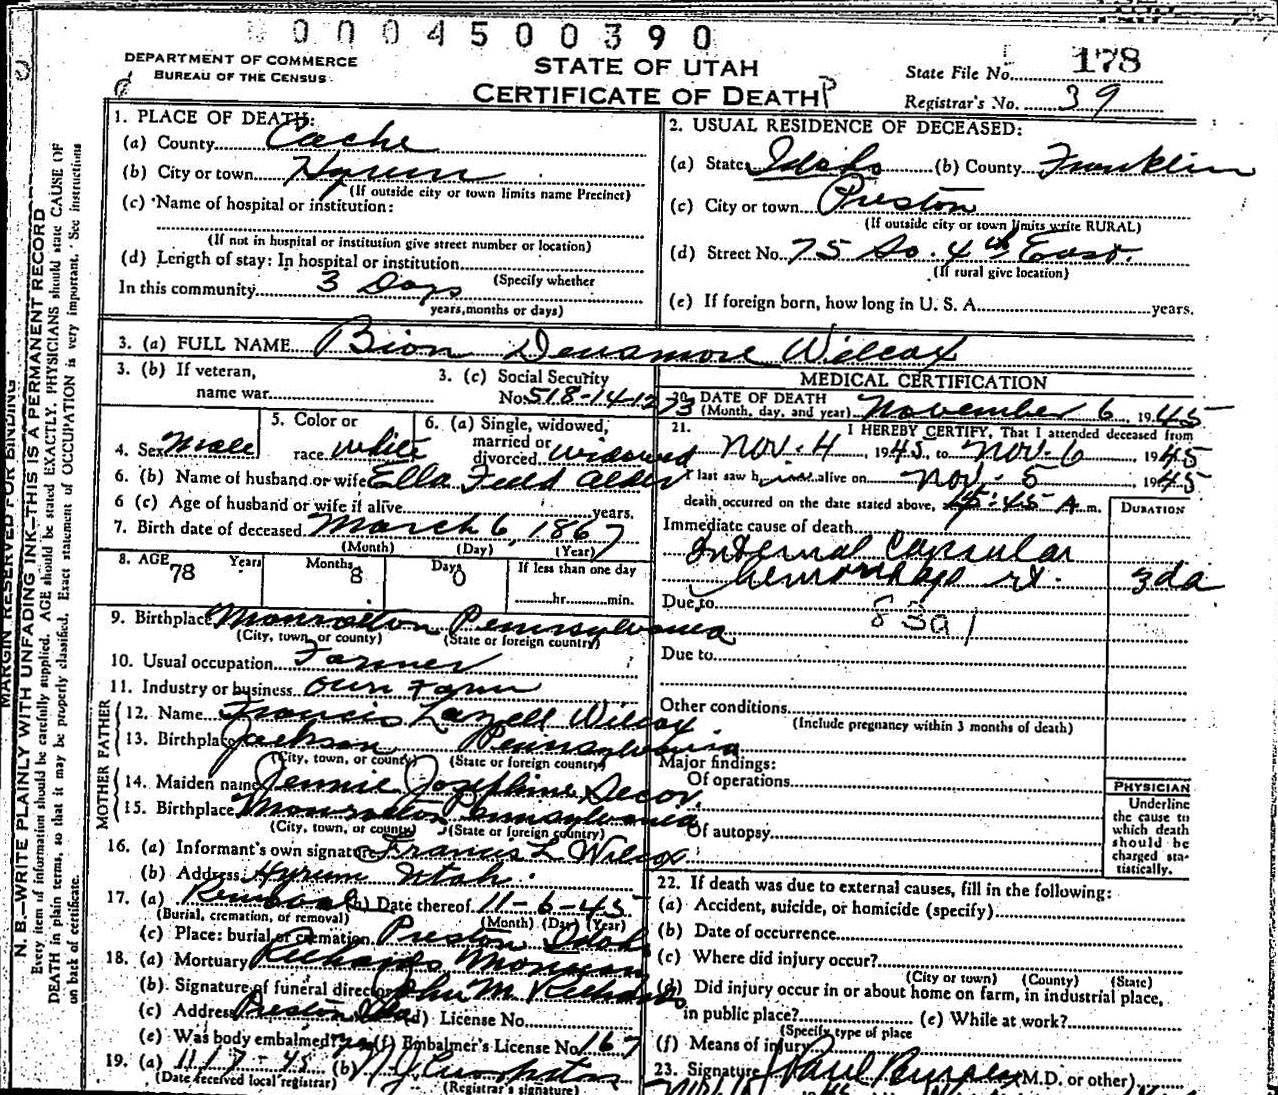 0004500390
DEPARTMENT OF COMMERCE
BUREAU OF THE CENSUS
STATE OF UTAH
CERTIFICATE OF DEATH
State File No. 178
Registrar's No. 39
MARGIN RESERVED FOR BINDING
N. B.—WRITE PLAINLY WITH UNFADING INK—THIS IS A PERMANENT RECORD
Every item of information should be carefully supplied. AGE should be stated EXACTLY. PHYSICIANS should state CAUSE OF
DEATH in plain terms, so that it may be properly classified. Exact statement of OCCUPATION is very important. See instructions
on back of certificate.
1. PLACE OF DEATH:
(a) County Cache
(b) City or town Hyrum
(If outside city or town limits name Precinct)
(c) Name of hospital or institution:
(If not in hospital or institution give street number or location)
(d) Length of stay: In hospital or institution
(Specify whether
In this community 3 Days
years, months or days)
2. USUAL RESIDENCE OF DECEASED:
(a) State Idaho (b) County Franklin
(c) City or town Preston
(If outside city or town limits write RURAL)
(d) Street No. 75 So. 4th East.
(If rural give location)
(e) If foreign born, how long in U. S. A. years.
3. (a) FULL NAME Bion Densmore Wilcox
3. (b) If veteran,
name war
3. (c) Social Security
No. 518-14-1273
4. Sex Male
5. Color or
race white
6. (a) Single, widowed,
married or
divorced widowed
6. (b) Name of husband or wife Ella Alder
6 (c) Age of husband or wife if alive years.
7. Birth date of deceased March 6, 1867
(Month) (Day) (Year)
8. AGE Years Months Days If less than one day
78 8 0
hr. min.
9. Birthplace Pennsylvania
(City, town, or county) (State or foreign country)
10. Usual occupation Farmer
11. Industry or business Own Farm
FATHER
12. Name Francis Lazell Wilcox
13. Birthplace Jackson Pennsylvania
(City, town, or county) (State or foreign country)
MOTHER
14. Maiden name Jennie Josephine Decov
15. Birthplace Pennsylvania
(City, town, or county) (State or foreign country)
16. (a) Informant's own signature Francis L Wilcox
(b) Address Hyrum Utah
17. (a) Removal (b) Date thereof 11-6-45
(Burial, cremation, or removal) (Month) (Day) (Year)
(c) Place: burial or cremation Preston Idaho
18. (a) Mortuary Richards Mortuary
(b) Signature of funeral director John M Richards
(c) Address Preston Ida (d) License No.
(e) Was body embalmed? yes (f) Embalmer's License No. 167
19. (a) 11/7-45 (b)
(Date received local registrar) (Registrar's signature)
MEDICAL CERTIFICATION
20. DATE OF DEATH
(Month, day, and year) November 6, 1945
21. I HEREBY CERTIFY, That I attended deceased from
Nov. 4, 1945, to Nov. 6, 1945
I last saw him alive on Nov. 5, 1945
death occurred on the date stated above, 5:45 A.m.
DURATION
Immediate cause of death
Internal Capsular
hemorrhage rt. 3da
Due to 83a1
Due to
Other conditions
(Include pregnancy within 3 months of death)
Major findings:
Of operations
Of autopsy
PHYSICIAN
Underline
the cause to
which death
should be
charged sta-
tistically.
22. If death was due to external causes, fill in the following:
(a) Accident, suicide, or homicide (specify)
(b) Date of occurrence
(c) Where did injury occur?
(City or town) (County) (State)
(d) Did injury occur in or about home on farm, in industrial place,
in public place? (e) While at work?
(Specify type of place
(f) Means of injury
23. Signature Paul M.D. or other)